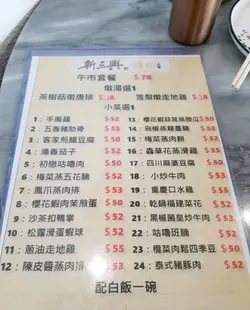 新三興
午市套餐 $78
燉湯選1
茶樹菇燉唐排 $58 雪梨燉走地雞 $58
小菜選1
1：手撕雞 $52
2：五香豬肋骨 $55
3：客家煎釀豆腐 $50
4：瀟香茄子 $52
5：初戀咕嚕肉 $50
6：梅菜蒸五花腩 $50
7：鳳爪蒸肉排 $52
8：櫻花蝦肉茸煎蛋 $50
9：沙茶扣鴨掌 $52
10：松露滑蛋蝦球 $55
11：蔥油走地雞 $55
12：陳皮醬蒸肉排 $53
13：櫻花蝦蒜茸蒸勝瓜 $50
14：剁椒蒸雞 $50
15：梅菜蒸肉餅 $52
16：蟲草花蒸滑雞 $55
17：四川麻婆豆腐 $50
18：小炒牛肉 $52
19：重慶口水雞 $53
20：乾鍋福建菜花 $52
21：黑椒薗皇炒牛肉 $53
22：咕嚕班腩 $52
23：欖菜肉鬆四季豆 $50
24：泰式豬頸肉 $52
配白飯一碗